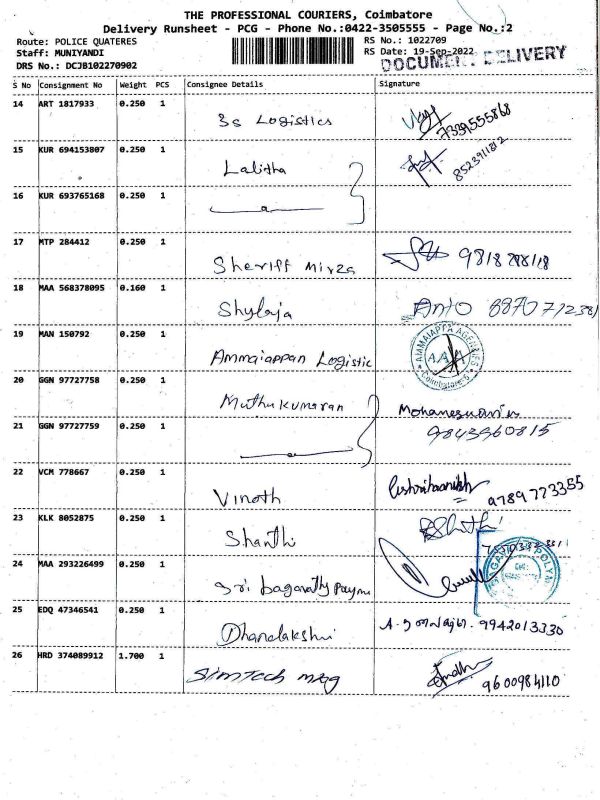 THE PROFESSIONAL COURIERS, Coimbatore
Delivery Runsheet - PCG - Phone No.:0422-3505555 - Page No.:2
Route: POLICE QUATERES
Staff: MUNIYANDI
DRS No.: DCJB102270902
RS No.: 1022709
RS Date: 19-Sep-2022
DOCUMENT DELIVERY
S No Consignment No Weight PCS Consignee Details Signature
14 ART 1817933 0.250 1 3s Logistics 7339555868
15 KUR 694153807 0.250 1 Lalitha 8523911812
16 KUR 693765168 0.250 1
17 MTP 284412 0.250 1 Sheriff Mirza
18 MAA 568378095 0.160 1 Shylaja Anto
19 MAN 150792 0.250 1 Ammaiappan Logistic
AMMAIAPPA AGENCIES AAA Coimbatore-6
20 GGN 97727758 0.250 1 Muthukumaran
21 GGN 97727759 0.250 1 9843560815
22 VCM 778667 0.250 1 Vinoth 9789773355
23 KLK 8052875 0.250 1 Shanthi
24 MAA 293226499 0.250 1 Sri bagavathy
25 EDQ 47346541 0.250 1 Dhanalakshmi 9942013330
26 HRD 374089912 1.700 1 Simtech mag 9600984110